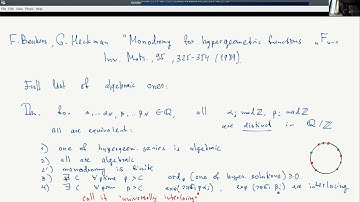 F. Beukers, G. Heckman "Monodromy for hypergeometric functions nFn-1"
Inv. Math., 95, 325-354 (1989).
Full list of algebraic ones:
Thm. for α1,...,αn, β1...βn ∈ Q, all αi mod Z, βi mod Z
all are equivalent: are distinct in Q/Z
1) one of hypergeom. series is algebraic
2) all are algebraic
3) monodromy is finite
4) ∃ C ∀ prime p > C ordp (one of hyper. solutions) ≥ 0.
∀ p > C exp(2πi αj), exp(2πi βj) are interlacing
call it "universally interlacing"